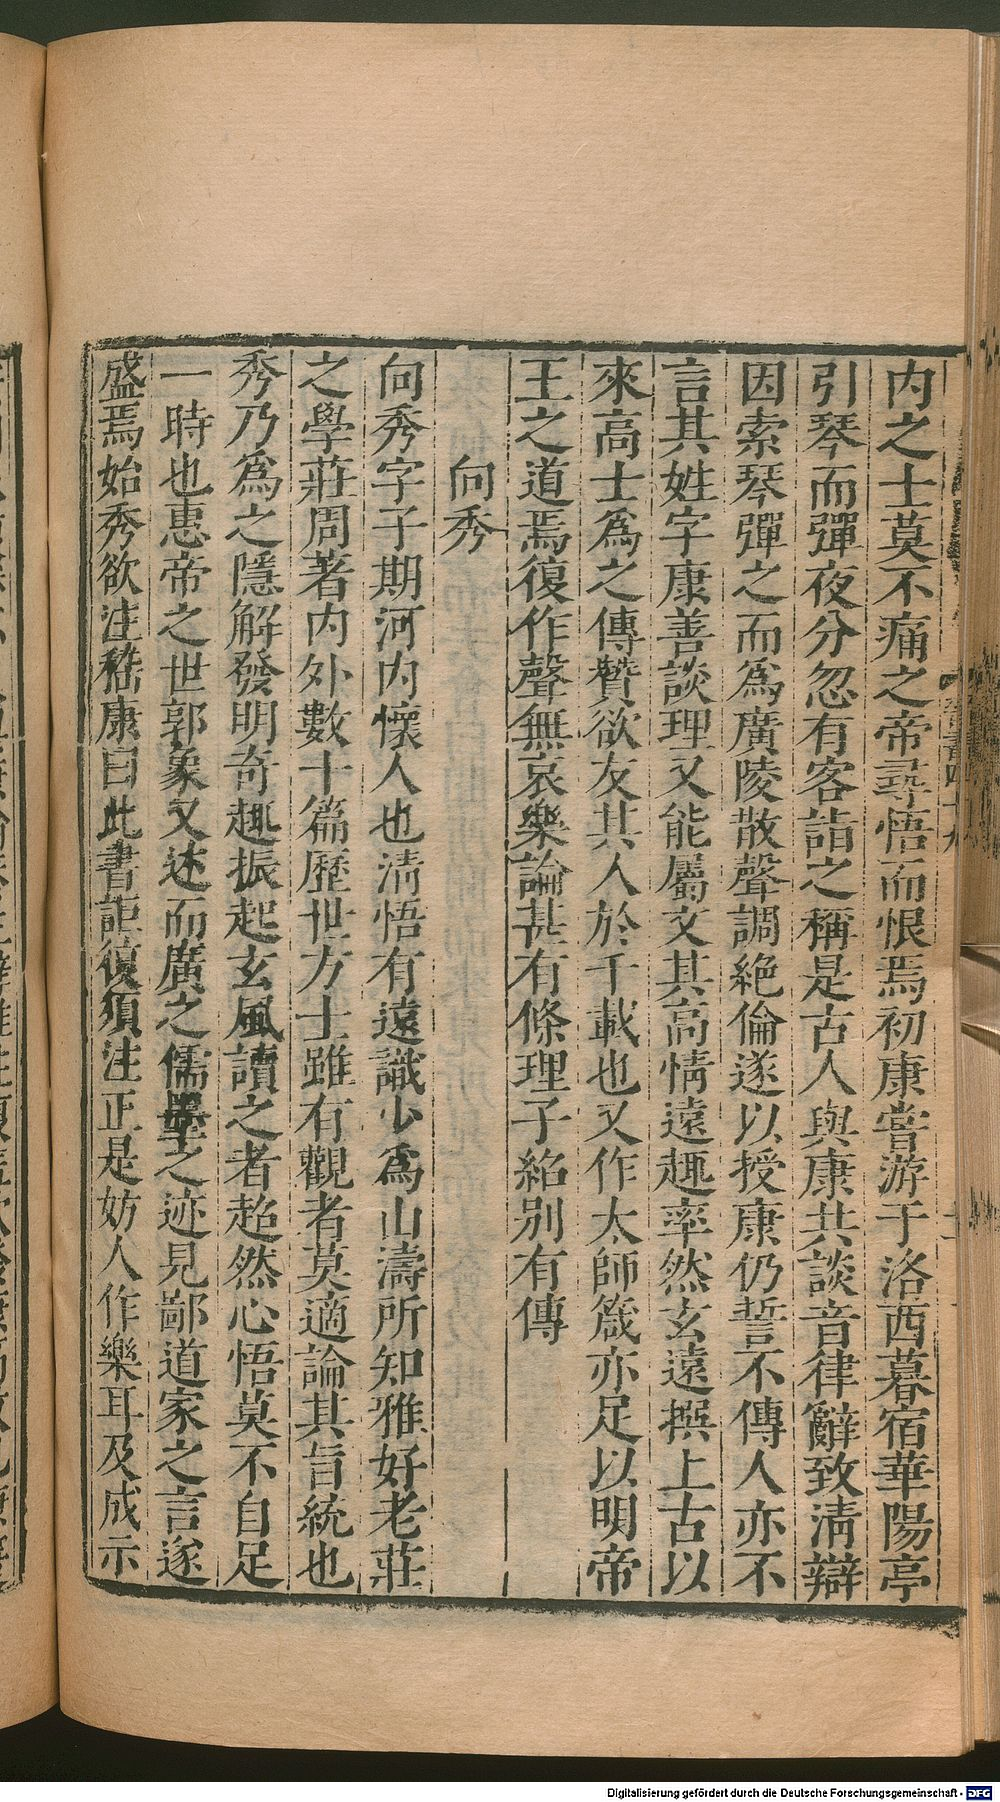 内之士莫不痛之帝尋悟而恨焉初康嘗游于洛西暮宿華陽亭
引琴而彈夜分忽有客詣之稱是古人與康共談音律辭致清辯
因索琴彈之而爲廣陵散聲調絶倫遂以授康仍誓不傳人亦不
言其姓字康善談理又能屬文其高情遠趣率然玄遠撰上古以
來高士爲之傳贊欲友其人於千載也又作太師箴亦足以明帝
王之道焉復作聲無哀樂論甚有條理子紹别有傳
向秀
向秀字子期河内懷人也清悟有遠識少爲山濤所知雅好老莊
之學莊周著内外數十篇歷世方士雖有觀者莫適論其旨統也
秀乃爲之隱解發明奇趣振起玄風讀之者超然心悟莫不自足
一時也惠帝之世郭象又述而廣之儒墨之迹見鄙道家之言遂
盛焉始秀欲注嵇康曰此書詎復須注正是妨人作樂耳及成示
Digitalisierung gefördert durch die Deutsche Forschungsgemeinschaft - DFG